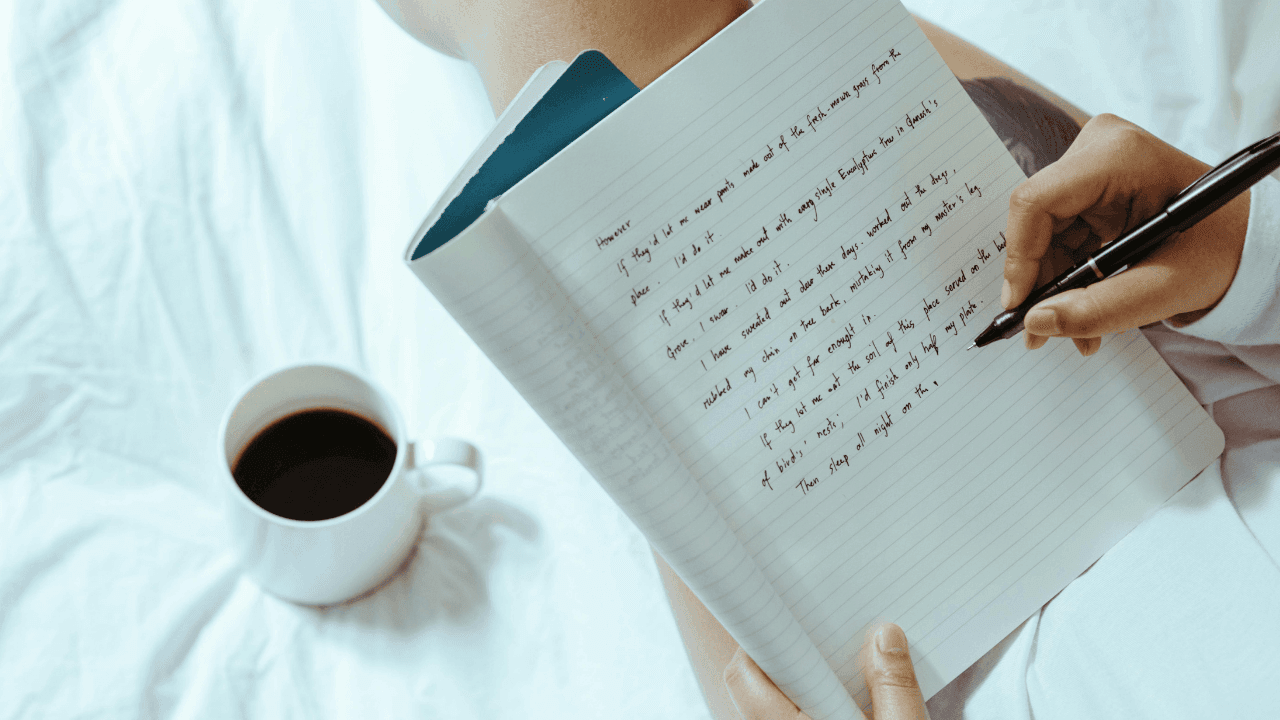 However
If they'd let me wear pants made out of the fresh-mown grass from the
place. I'd do it.
If they'd let me make out with every single Eucalyptus tree in Queen's
Grove, I swear. I'd do it.
I have sweated out dew these days. worked out the dregs,
rubbed my chin on tree bark, mistaking it from my master's leg
I can't get far enough in.
If they let me eat the soil of this place served on the
of birds' nests; I'd finish only half my plate.
Then sleep all night on the